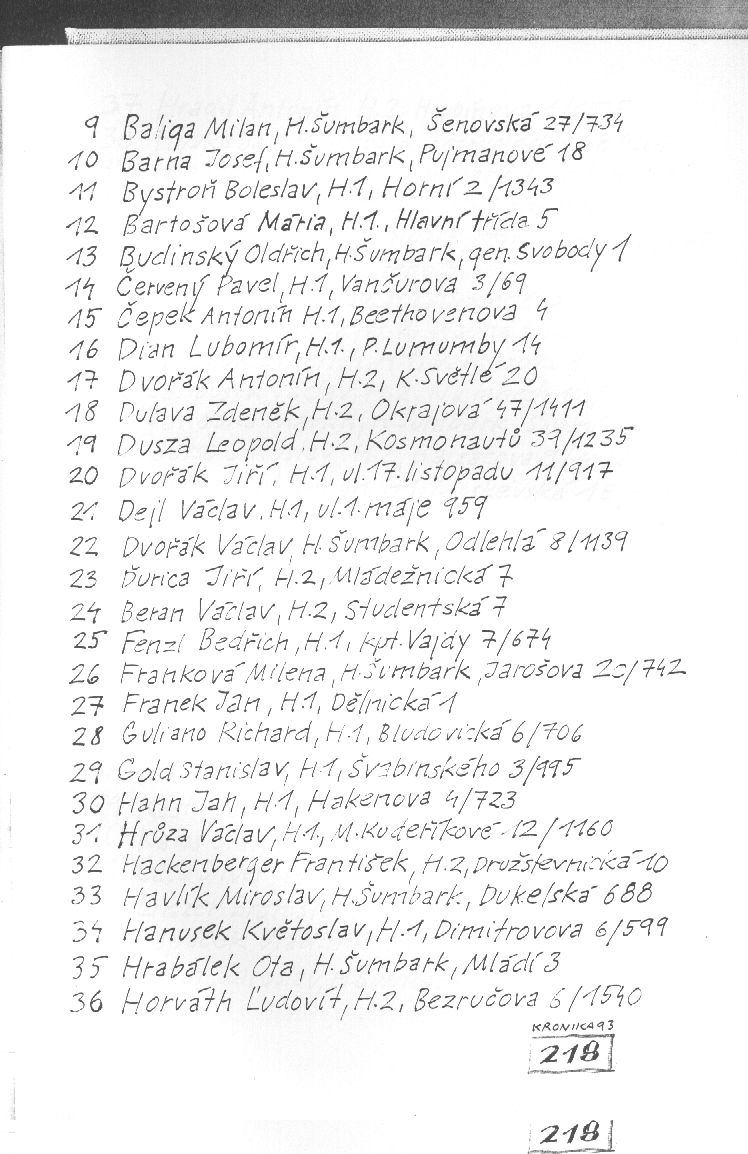 9 Baliga Milan, H.Šumbark, Šenovská 27/734
10 Barna Josef, H.Šumbark, Pujmanové 18
11 Bystroň Boleslav, H.1, Horní 2/1343
12 Bartošová Mária, H.1., Hlavní třída 5
13 Budinský Oldřich, H.Šumbark, gen. Svobody 1
14 Červený Pavel, H.1, Vančurova 3/69
15 Čepek Antonín H.1, Beethovenova 4
16 Dian Lubomír, H.1., P.Lumumby 14
17 Dvořák Antonín, H.2, K.Světlé 20
18 Dulava Zdeněk, H.2, Okrajová 47/1411
19 Dusza Leopold, H.2, Kosmonautů 39/1235
20 Dvořák Jiří, H.1, ul.17.listopadu 11/917
21 Dejl Václav, H.1, ul.1.máje 959
22 Dvořák Václav, H.Šumbark, Odlehlá 8/1139
23 Ďurica Jiří, H.2, Mládežnická 7
24 Beran Václav, H.2, Studentská 7
25 Fenzl Bedřich, H.1, kpt.Vajdy 7/674
26 Franková Milena, H.Šumbark, Jarošova 2c/742
27 Franek Ján, H.1, Dělnická 1
28 Guliano Richard, H.1, Bludovická 6/706
29 Gold Stanislav, H.1, Švabinského 3/995
30 Hahn Jan, H.1, Hakenova 4/723
31 Hrůza Václav, H.1, M.Kudeříkové 12/1160
32 Hackenberger František, H.2, Družstevnická 10
33 Havlík Miroslav, H.Šumbark, Dukelská 688
34 Hanusek Květoslav, H.1, Dimitrovova 6/599
35 Hrabálek Ota, H.Šumbark, Mládí 3
36 Horváth Ľudovít, H.2, Bezručova 6/1540
KRONIKA 93
218
218